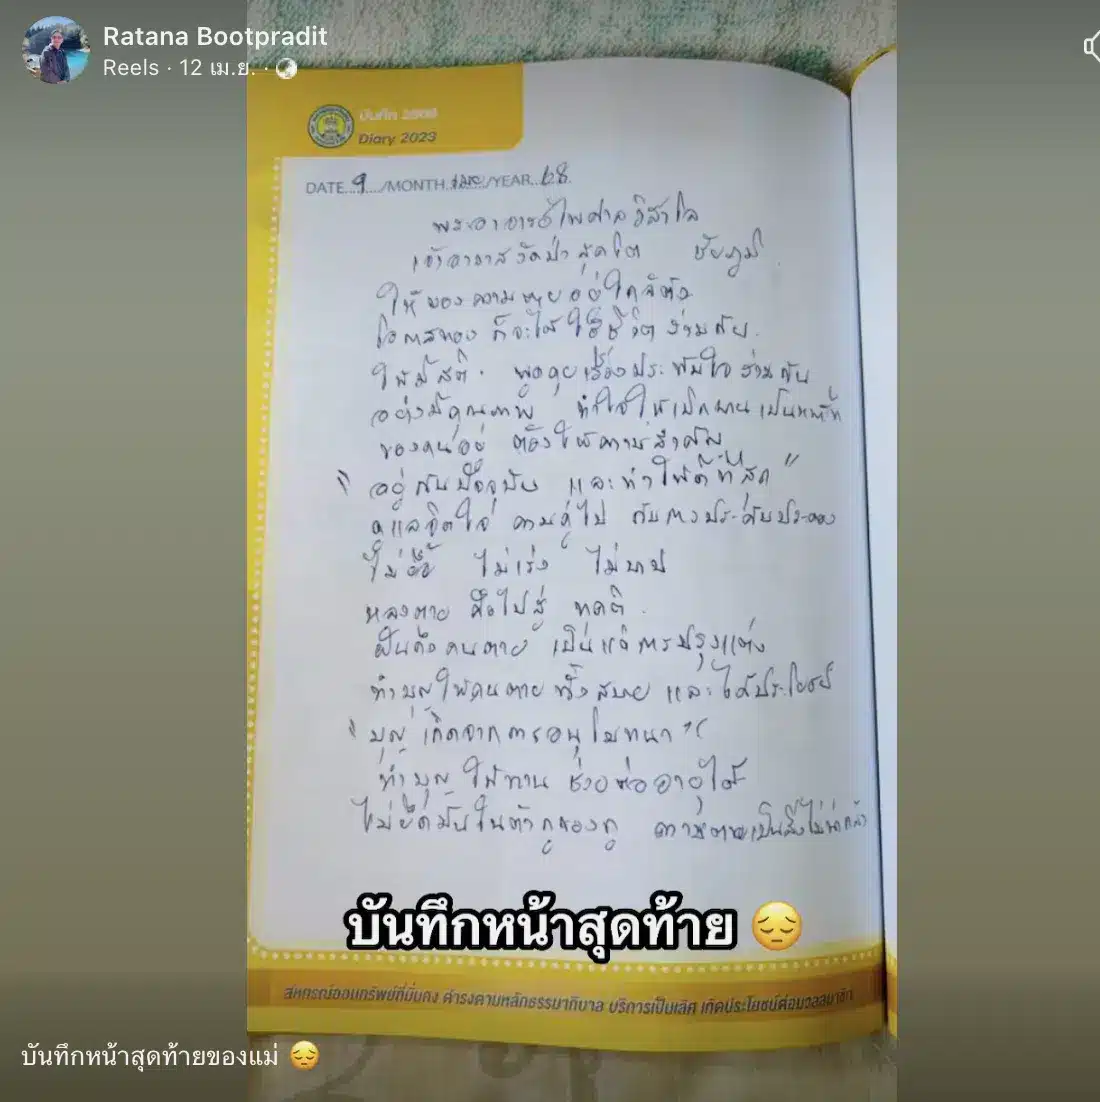 Ratana Bootpradit
Reels · 12 เม.ย. ·
บันทึก 2566
Diary 2023
DATE 9 /MONTH เมย /YEAR 68
พระอาจารย์ไพศาล วิสาโล
เจ้าอาวาสวัดป่าสุคะโต ชัยภูมิ
ให้มองความตายอยู่ใกล้ตัว
โอกาสทอง ก็จะได้ใช้ชีวิตร่วมกัน
ให้มีสติ พูดคุยเรื่องประทับใจร่วมกัน
อย่างมีคุณภาพ ทำใจให้เบิกบานเป็นหน้าที่
ของคนอยู่ ต้องให้ความสำคัญ
"อยู่กับปัจจุบัน และทำให้ดีที่สุด"
ดูแลจิตใจ ควบคู่ไป กับการประคับประคอง
ไม่ยื้อ ไม่เร่ง
หลงตาย คือไปสู่ ทุคติ
ฝันถึงคนตาย เป็นแค่การปรุงแต่ง
ทำบุญให้คนตาย ทั้งสบาย และได้ประโยชน์
"บุญ เกิดจากการอนุโมทนา"
ทำบุญ ให้ทาน ช่วยต่ออายุได้
ไม่ยึดมั่นในตัวกูของกู ความตายเป็นสิ่งไม่น่ากลัว
บันทึกหน้าสุดท้าย 😔
สหกรณ์ออมทรัพย์ที่มั่นคง ดำรงตามหลักธรรมาภิบาล บริการเป็นเลิศ เกิดประโยชน์ต่อมวลสมาชิก
บันทึกหน้าสุดท้ายของแม่ 😔